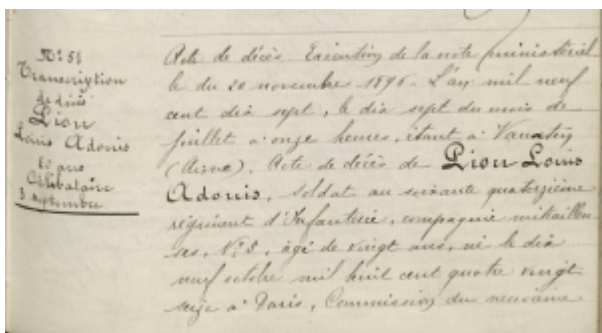 N° 51
Transcription
de décès
Lion
Louis Adonis
20 ans
Célibataire
3 septembre
Acte de décès. Exécution de la note ministériel
le du 20 novembre 1896. L'an mil neuf
cent dix sept, le dix sept du mois de
juillet à onze heures, étant à
(Aisne). Acte de décès de Lion Louis
Adonis, soldat au soixante quatorzième
régiment d'Infanterie, compagnie mitrailleu
ses, N° 3, âgé de vingt ans, né le dix
neuf octobre mil huit cent quatre vingt
seize à Paris, Commission du neuvième